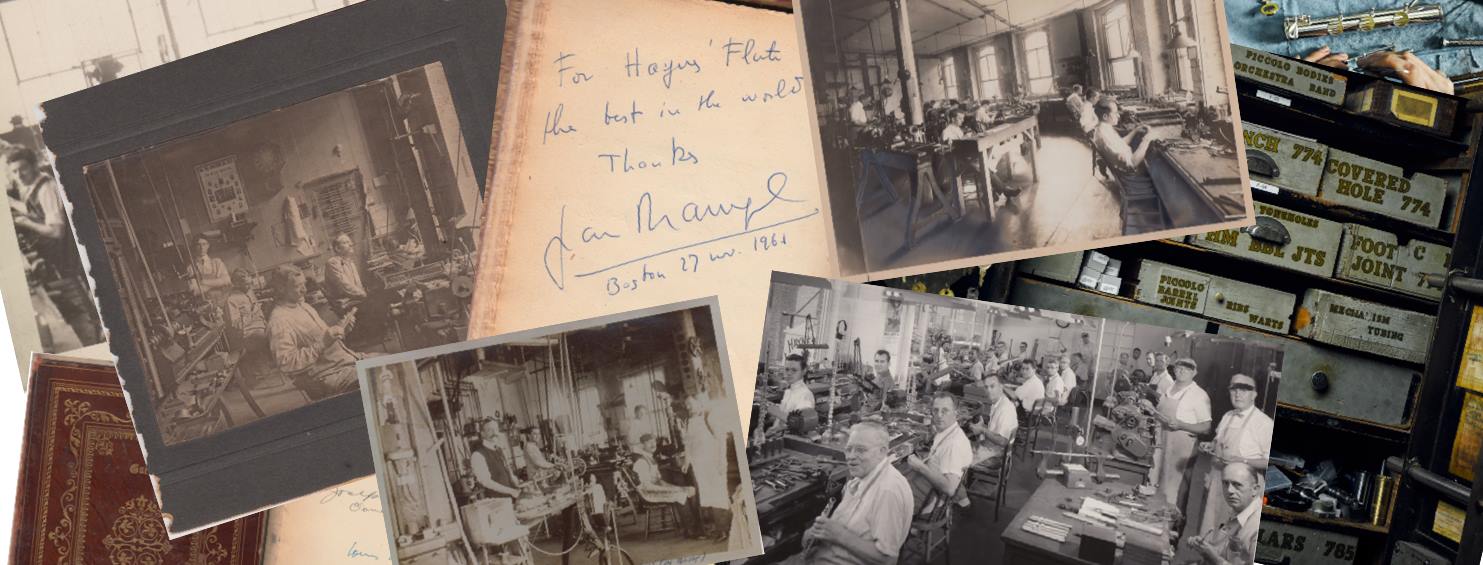 For Haynes' Flute
the best in the world
Thanks
Boston 27 nov. 1961
PICCOLO BODIES
ORCHESTRA BAND
NCH 774
COVERED
HOLE 774
TONEHOLES
HM BBL JTS
FOOT C
JOINT
PICCOLO
BARREL
JOINTS
RIBS
WARTS
MECHA ISM
TUBING
LARS 785